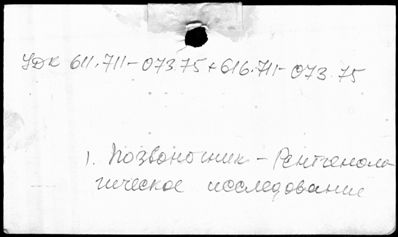 УДК 611.711-073.75+616.711-073.75
1. Позвоночник - Рентгеноло
гическое исследование